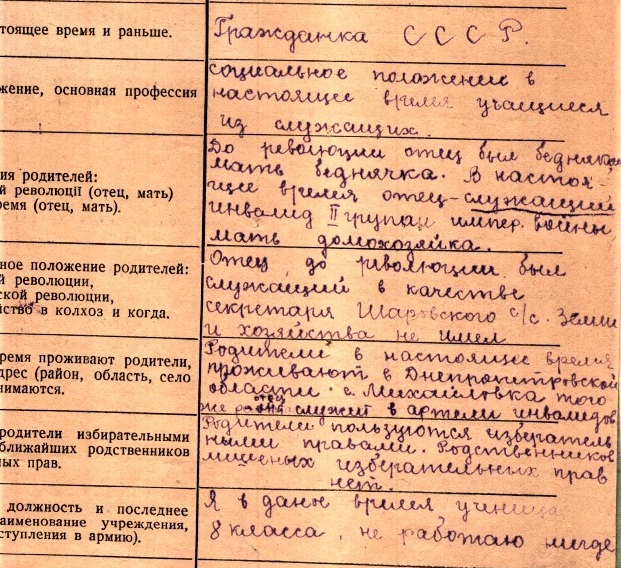 тоящее время и раньше.
Гражданка СССР.
жение, основная профессия
социальное положение в
настоящее время учащиеся
из служащих.
ия родителей:
й революціі (отец, мать)
ремя (отец, мать).
До революции отец был бедняк
мать беднячка. В настоя-
щее время отец-служащий
инвалид II групан импер. войны
мать домохозяйка.
ное положение родителей:
й революции,
ской революции,
йство в колхоз и когда.
Отец до революции был
служащий в качестве
секретаря Шаровского с/с. Земли
и хозяйства не имел
ремя проживают родители,
дрес (район, область, село
нимаются.
Родители в настоящее время
проживают в Днепропитровской
области с. Михайловка того
же отец служит в артели инвалидов
родители избирательными
ближайших родственников
ных прав.
Родители пользуются избератель
ными правами. Родственников
лишеных избирательных прав
нет.
должность и последнее
аименование учреждения,
ступления в армию).
Я в даное время ученица
8 класса, не работаю нигде